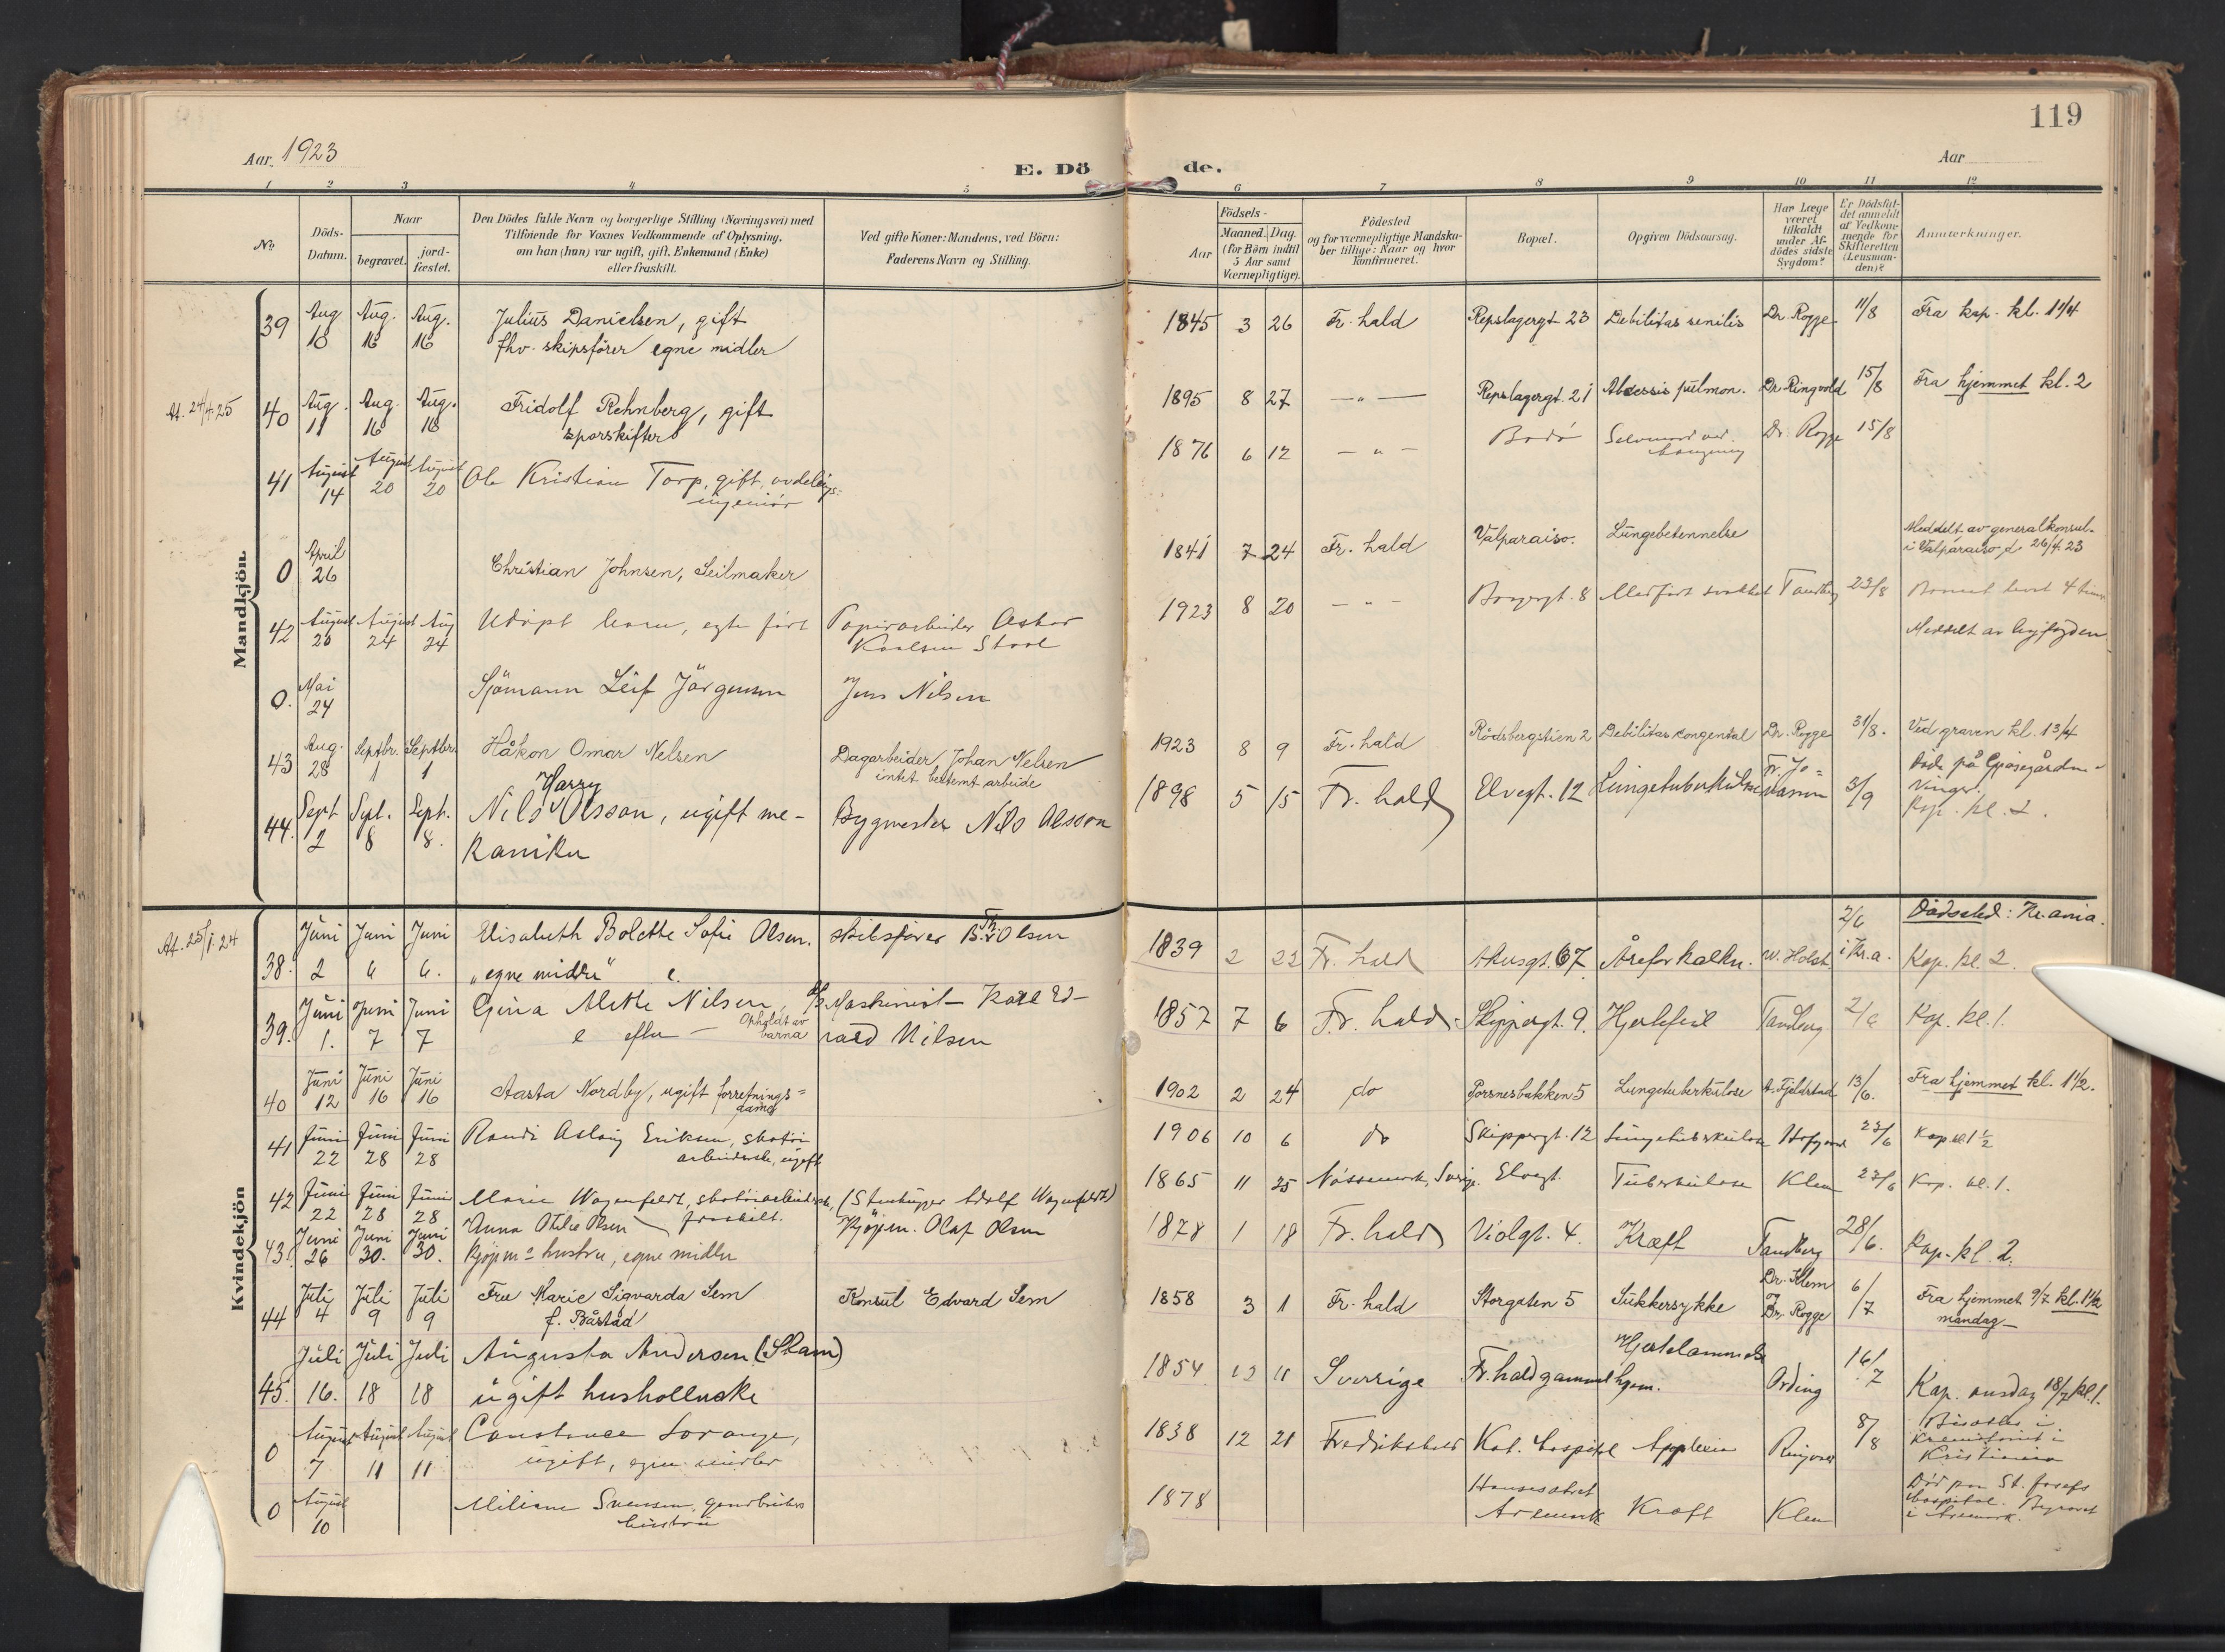 119
Aar 1923
E. Dö
de.
Aar
1 2 3 4 5 6 7 8 9 10 11 12
No
Döds-
Datum.
Naar
begravet.
jord-
fæstet.
Den Dödes fulde Navn og borgerlige Stilling (Næringsvei) med
Tilföiende for Voxnes Vedkommende af Oplysning,
om han (hun) var ugift, gift, Enkemand (Enke)
eller fraskilt.
Ved gifte Koner: Mandens, ved Börn:
Faderens Navn og Stilling.
Födsels-
Aar
Maaned. Dag.
(for Börn indtil
5 Aar samt
Værnepligtige).
Födested
og for værnepligtige Mandska-
ber tillige: Naar og hvor
konfirmeret.
Bopæl.
Opgiven Dödsaarsag.
Har Læge
været
tilkaldt
under Af-
dödes sidste
Sygdom?
Er Dödsfal-
det anmeldt
af Vedkom-
mende for
Skifteretten
(Lensman-
den)?
Anmærkninger.
Mandkjön
39 Aug 10 Aug. 16 Aug. 16 Julius Danielsen, gift
fhv. skipsfører egne midler
1845 3 26 Fr.hald Repslagergt 23 Debilitas senilis Dr. Rogge 11/8 Fra kap. kl. 11/4
At. 24/4 25
40 Aug. 11 Aug. 16 Aug. 16 Fridolf Rehnberg, gift
sporskifter
1895 8 27 — " — Repslagergt. 21 Abcessis pulmon. Dr. Ringvold 15/8 Fra hjemmet kl. 2
41 August 14 August 20 August 20 Ole Kristian Torp, gift, avdelings=
ingeniør
1876 6 12 — " — Bodø Selvmord ved Dr. Rogge 15/8
hængning
0 April 26 Christian Johnsen, Seilmaker
1841 7 24 Fr.hald Valparaiso. Lungebetennelse Meddelt av generalkonsul.
i Valparaiso d. 26/4 23
42 August 20 August 24 August 24 Udøpt barn, egte født Papirarbeider Oskar
Karlsen Stool
1923 8 20 — " — Borgergt. 8 Medfødt svakhet Tandberg 22/8 Barnet levet 4 timer
0. Mai 24 Sjömann Leif Jörgensen Jens Nilsen
Meddelt av byfogden
43 Aug. 28 Septbr. 1 Septbr. 1 Håkon Omar Nelsen Dagarbeider Johan Nelsen
intet bestemt arbeide
1923 8 9 Fr.hald Rödsbergstien 2 Debilitas congenital Dr. Rogge 31/8. Ved graven kl. 13/4
44. Sept 2 Sept. 8 Sept. 8. Nils Harry Olsson, ugift me-
kaniker
Bygmester Nils Olsson
1898 5 15 Fr.hald Elvegt. 12 Lungetuberkulose 3/9
Vinger.
Kap. kl. 2.
Kvindekjön
At. 25/1 24
38. Juni 2 Juni 6 Juni 6. Elisabeth Bolette Sofie Olsen. skibsfører B. Th. Olsen
"egne midler" e.
1839 2 22 Fr.hald 67 Åreforkalkn. W. Holst 2/6 i Kr.a. Dødssted: Kr.ania.
Kap. kl. 2.
39. Juni 1. Juni 7 Juni 7 Gina Mette Nilsen, Maskinist Karl Ed-
e efter — Opholdt av
barna
vard Nilsen
1857 7 6 Fr.hald Skippergt. 9. Hjertefeil Tandberg 2/6 Kap. kl. 1.
40 Juni 12 Juni 16 Juni 16 Aasta Nordby, ugift forretnings=
dame
1902 2 24 do Porsnesbakken 5 Lungetuberkulose A. Fjeldstad 13/6. Fra hjemmet kl. 1½.
41 Juni 22 Juni 28 Juni 28 Randi Aslaug Eriksen, skotøi
arbeiderske, ugift
1906 10 6 do Skippergt. 12 Lungetuberkulose Hofgaard 23/6 Kap. kl. 1½
42 Juni 22 Juni 28 Juni 28 Marie Wagenfeldt, skotøiarbeiderske, (Stenhugger Adolf Wagenfeldt)
fraskilt.
1865 11 25 Nössemark, Sverige. Elvegt. Tuberkulose Klem 23/6 Kap. kl. 1.
43. Juni 26 Juni 30. Juni 30. Anna Otilie Olsen Kjøpm. Olaf Olsen
Kjøpm.s hustru, egne midler
1878 1 18 Fr.hald Violgt. 4. Kræft Tandberg 28/6. Kap. kl. 2.
44 Juli 4 Juli 9 Juli 9 Fru Marie Sigvarda Sem Konsul Edvard Sem
f. Båstad
1858 3 1 Fr.hald Storgaten 5 Sukkersykke Dr. Klem
og
Dr. Rogge 6/7 Fra hjemmet 9/7 kl. 1½
mandag
45. Juli 16. Juli 18 Juli 18 Augusta Andersen (Skam)
ugift husholderske
1854 12 11 Sverige Fr.hald gammelhjem. Hjertelammelse Ording 16/7 Kap. onsdag 18/7 kl. 1.
0 August 7 August 11 August 11 Constance Lorange,
ugift, egne midler
1838 12 21 Fredrikshald Kat. hospital Apoplexia Ringvold 8/8 Bisattes i
Krematoriet i
Kristiania
0 August 10 Miliane Svensen, gaardbrukers
hustru
1878 Aremark Kræft Klem Død paa St. Josefs
hospital. Begravet
i Aremark.